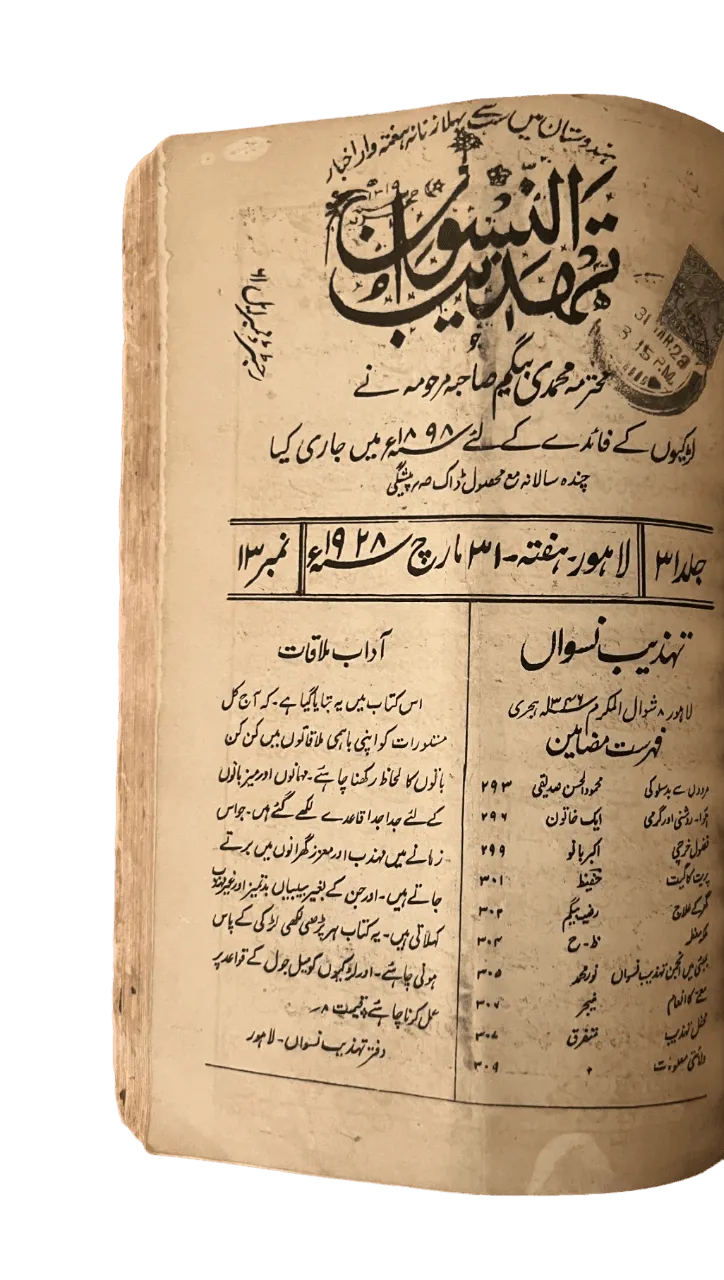 ہندوستان میں سب سے پہلا زنانہ ہفتہ وار اخبار
تہذیب النسواں
۱۳۱۹
محترمہ محمدی بیگم صاحبہ مرحومہ نے
لڑکیوں کے فائدے کے لئے ۱۸۹۸ء میں جاری کیا
چندہ سالانہ مع محصول ڈاک صہ پیشگی
31 MAR 28
3 15 P.M.
جلد ۳۱
لاہور - ہفتہ - ۳۱ مارچ ۱۹۲۸ء
نمبر ۱۳
تہذیب نسواں
لاہور ۸ شوال المکرم ۱۳۴۶ہجری
فہرست مضامین
مردوں سے بدسلوکی محمود الحسن صدیقی ۲۹۳
ہوا۔ روشنی اور گرمی ایک خاتون ۲۹۶
فضول خرچی اکبر بانو ۲۹۹
پریت کا گیت حفیظ ۳۰۱
گھر کے علاج رضیہ بیگم ۳۰۲
ظ - ح ۳۰۴
بمبئی میں انجمن تہذیب نسواں نور محمد ۳۰۵
معمے کا انعام منیجر ۳۰۷
محفل تہذیب متفرق ۳۰۷
ولائتی معلومات ۳۰۹
آداب ملاقات
اس کتاب میں یہ بتایا گیا ہے۔ کہ آج کل
مستورات کو اپنی باہمی ملاقاتوں میں کن کن
باتوں کا لحاظ رکھنا چاہئے۔ مہمانوں اور میزبانوں
کے لئے جدا جدا قاعدے لکھے گئے ہیں۔ جو اس
زمانے میں مہذب اور معزز گھرانوں میں برتے
جاتے ہیں۔ اور جن کے بغیر بیبیاں بدتمیز اور غیر مہذب
کہلاتی ہیں۔ یہ کتاب ہر پڑھی لکھی لڑکی کے پاس
ہونی چاہئے۔ اور لڑکیوں کو میل جول کے قواعد پر
عمل کرنا چاہئے، قیمت ۸ر
دفتر تہذیب نسواں - لاہور